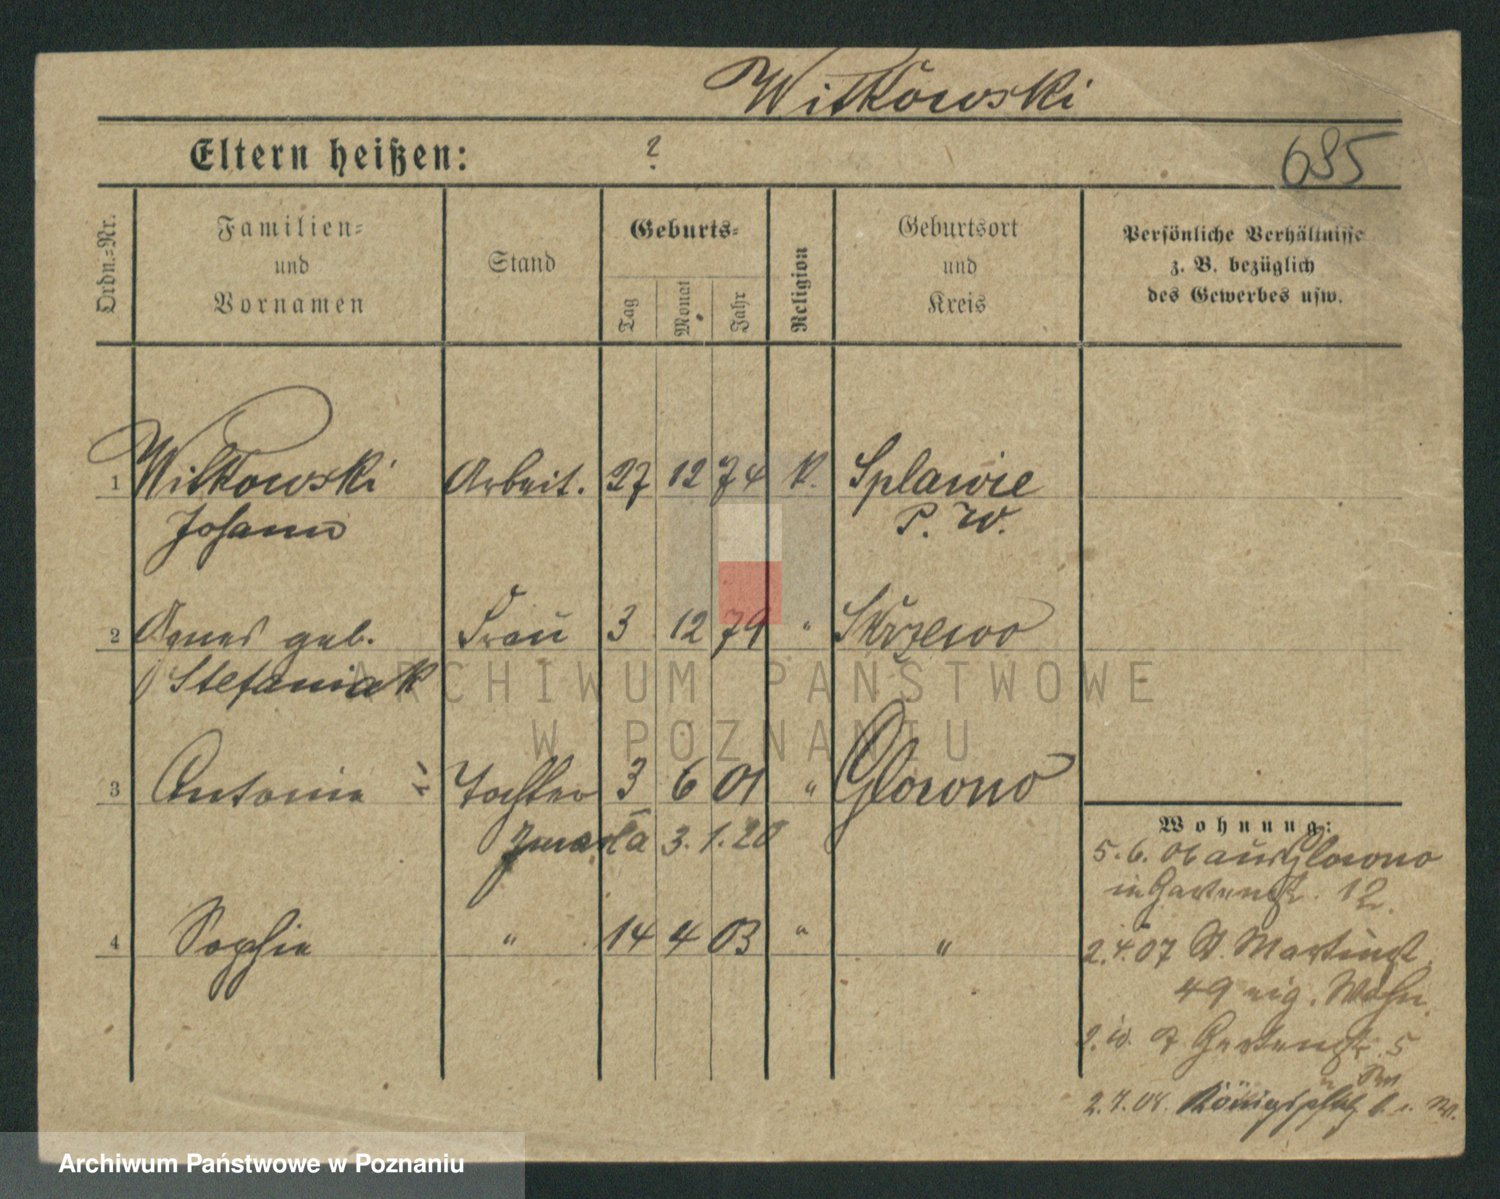 Witkowski
Eltern heißen: ?
685
Ordn.-Nr.
Familien-
und
Vornamen
Stand
Geburts-
Tag
Monat
Jahr
Religion
Geburtsort
und
Kreis
Persönliche Verhältnisse
z. B. bezüglich
des Gewerbes usw.
1 Witkowski Arbeit. 27 12 74 k. Splawie
Johann P. W.
2 Agnes geb. Frau 3 12 79 " Skrzewo
Stefaniak
3 Antonie Tochter 3 6 01 " Glowno
zmarła 3. 1. 20
4 Sophie " 14 4 03 " "
Wohnung:
5. 6. 06 aus Glowno
in Gartenst. 12.
2. 4. 07 St. Martinst.
49 eig. Wohn.
2. 10. 7 Gartenstr. 5
2. 7. 08. Königsplatz
ARCHIWUM PAŃSTWOWE
W POZNANIU
Archiwum Państwowe w Poznaniu